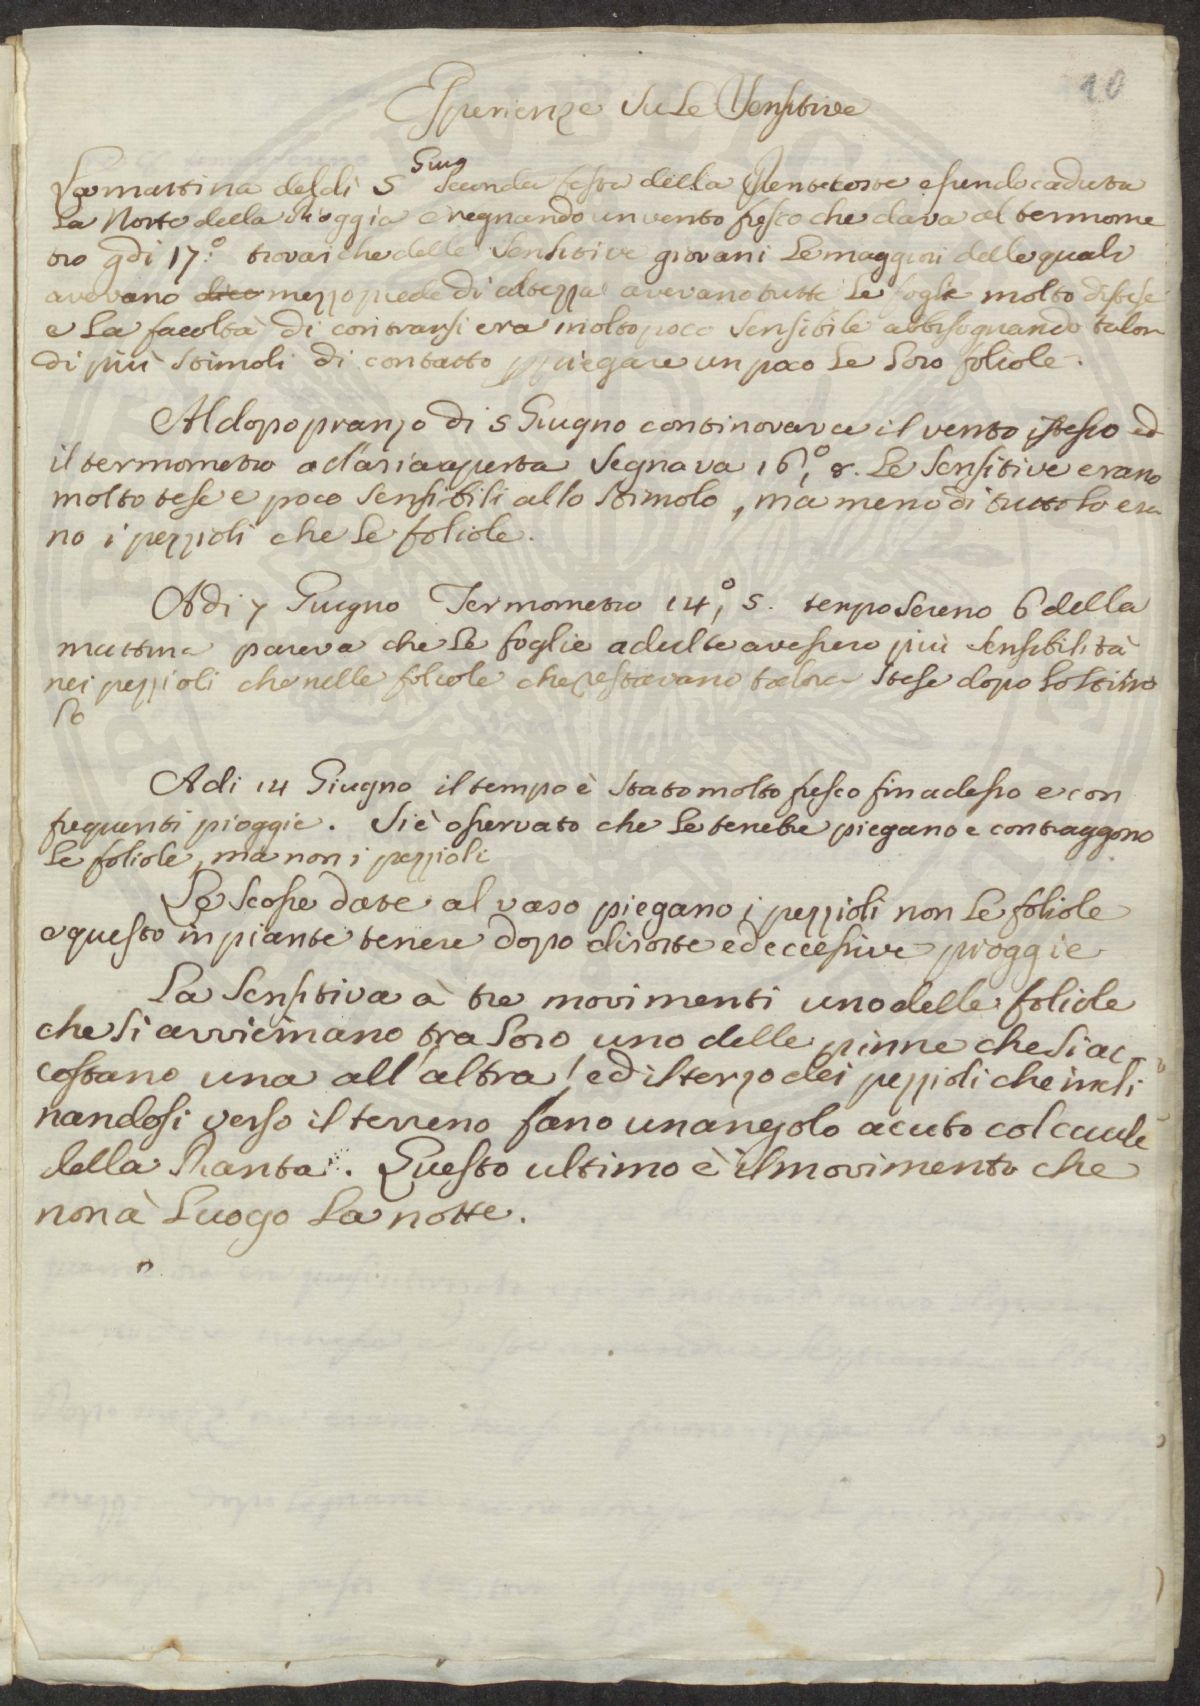 10
Esperienze su le Sensitive
La mattina del dì 5 Giug seconda festa della Pentecoste essendo caduta
la Notte della Pioggia e regnando un vento fresco che dava al termome
tro gdi 17.° trovai che delle Sensitive giovani le maggiori delle quali
avevano dieci mezzo piede di altezza avevano tutte le foglie molto distese
e la facoltà di contrarsi era molto poco sensibile abbisognando talora
di più stimoli di contatto p piegare un poco le loro foliole.
Al dopo pranzo di 5 Giugno continovava il vento istesso ed
il termometro all'aria aperta segnava 16,° 8. Le Sensitive erano
molto tese e poco sensibili allo stimolo, ma meno di tutto lo era
no i pezzioli che le foliole.
Adi 7 Giugno Termometro 14,° 5. tempo sereno 6 della
mattina pareva che le foglie adulte avessero più sensibilità
nei pezzioli che nelle foliole che restavano talora stese dopo lo stimo
lo
Adi 14 Giugno il tempo è stato molto fresco fin adesso e con
frequenti pioggie. Si è osservato che le tenebre piegano e contraggono
le foliole, ma non i pezzioli
Le scosse date al vaso piegano i pezzioli non le foliole
e questo in piante tenere dopo dirotte ed eccessive pioggie
La Sensitiva à tre movimenti uno delle foliole
che si avvicinano tra loro uno delle pinne che si ac
costano una all'altra, ed il terzo dei pezzioli che incli
nandosi verso il terreno fano un angolo acuto col caule
della Pianta. Questo ultimo è il movimento che
non à luogo la notte.